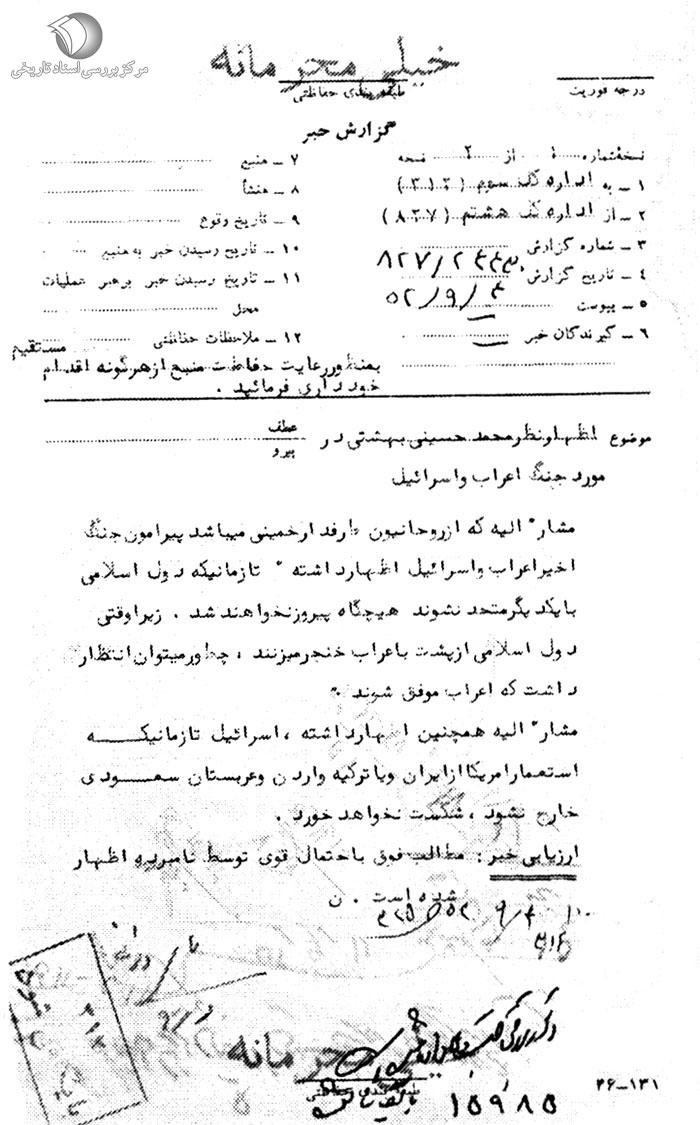 مرکز بررسی اسناد تاریخی
خیلی محرمانه
طبقه بندی حفاظتی
درجه فوریت
گزارش خبر
نسخه شماره ۱ از ۲ نسخه
۱ ـ به اداره کل سوم (۳۱۲)
۲ ـ از اداره کل هشتم (۸۲۷)
۳ ـ شماره گزارش
۴ ـ تاریخ گزارش
۵ ـ پیوست ۵۲/۹/۴
۶ ـ گیرندگان خبر
۷ ـ منبع
۸ ـ منشأ
۹ ـ تاریخ وقوع
۱۰ ـ تاریخ رسیدن خبر به منبع
۱۱ ـ تاریخ رسیدن خبر برهبر عملیات
محل
۱۲ ـ ملاحظات حفاظتی مستقیم
بمنظور رعایت حفاظت منبع از هرگونه اقدام
خودداری فرمائید .
موضوع اظهار نظر محمد حسینی بهشتی در
عطف
پیرو
مورد جنگ اعراب واسرائیل
مشار" الیه که از روحانیون طرفدار خمینی میباشد پیرامون جنگ
اخیر اعراب واسرائیل اظهار داشته " تا زمانیکه دول اسلامی
با یکدیگر متحد نشوند هیچگاه پیروز نخواهند شد . زیرا وقتی
دول اسلامی از پشت با عراب خنجر میزنند ، چطور میتوان انتظار
داشت که اعراب موفق شوند "
مشار" الیه همچنین اظهار داشته ، اسرائیل تا زمانیکه
استعمار امریکا از ایران ویا ترکیه واردن وعربستان سعودی
خارج نشود ، شکست نخواهد خورد .
ارزیابی خبر : مطالب فوق باحتمال قوی توسط نامبرده اظهار
شده است . ن
۵۲/۹/۴
۳۱۲
محرمانه
طبقه بندی حفاظتی
۱۵۹۸۵
۲۶-۱۳۱